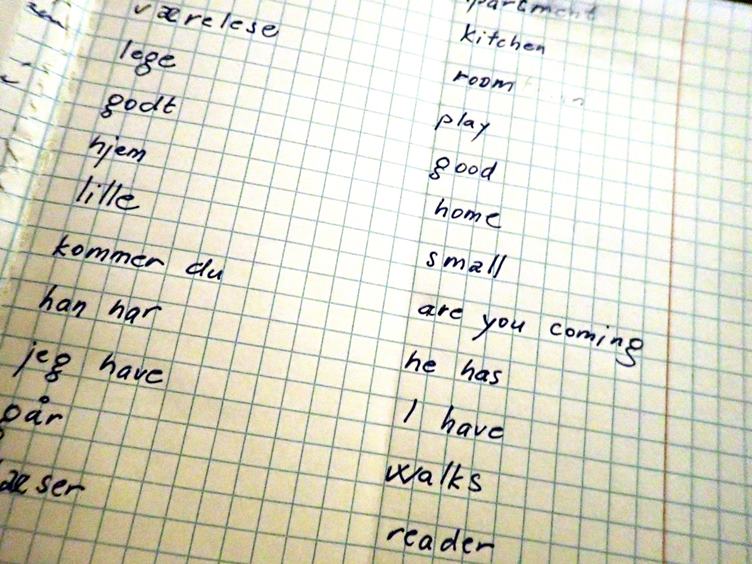 værelese
lege
godt
hjem
lille
kommer du
han har
jeg have
går
æser
apartment
kitchen
room
play
good
home
small
are you coming
he has
I have
walks
reader